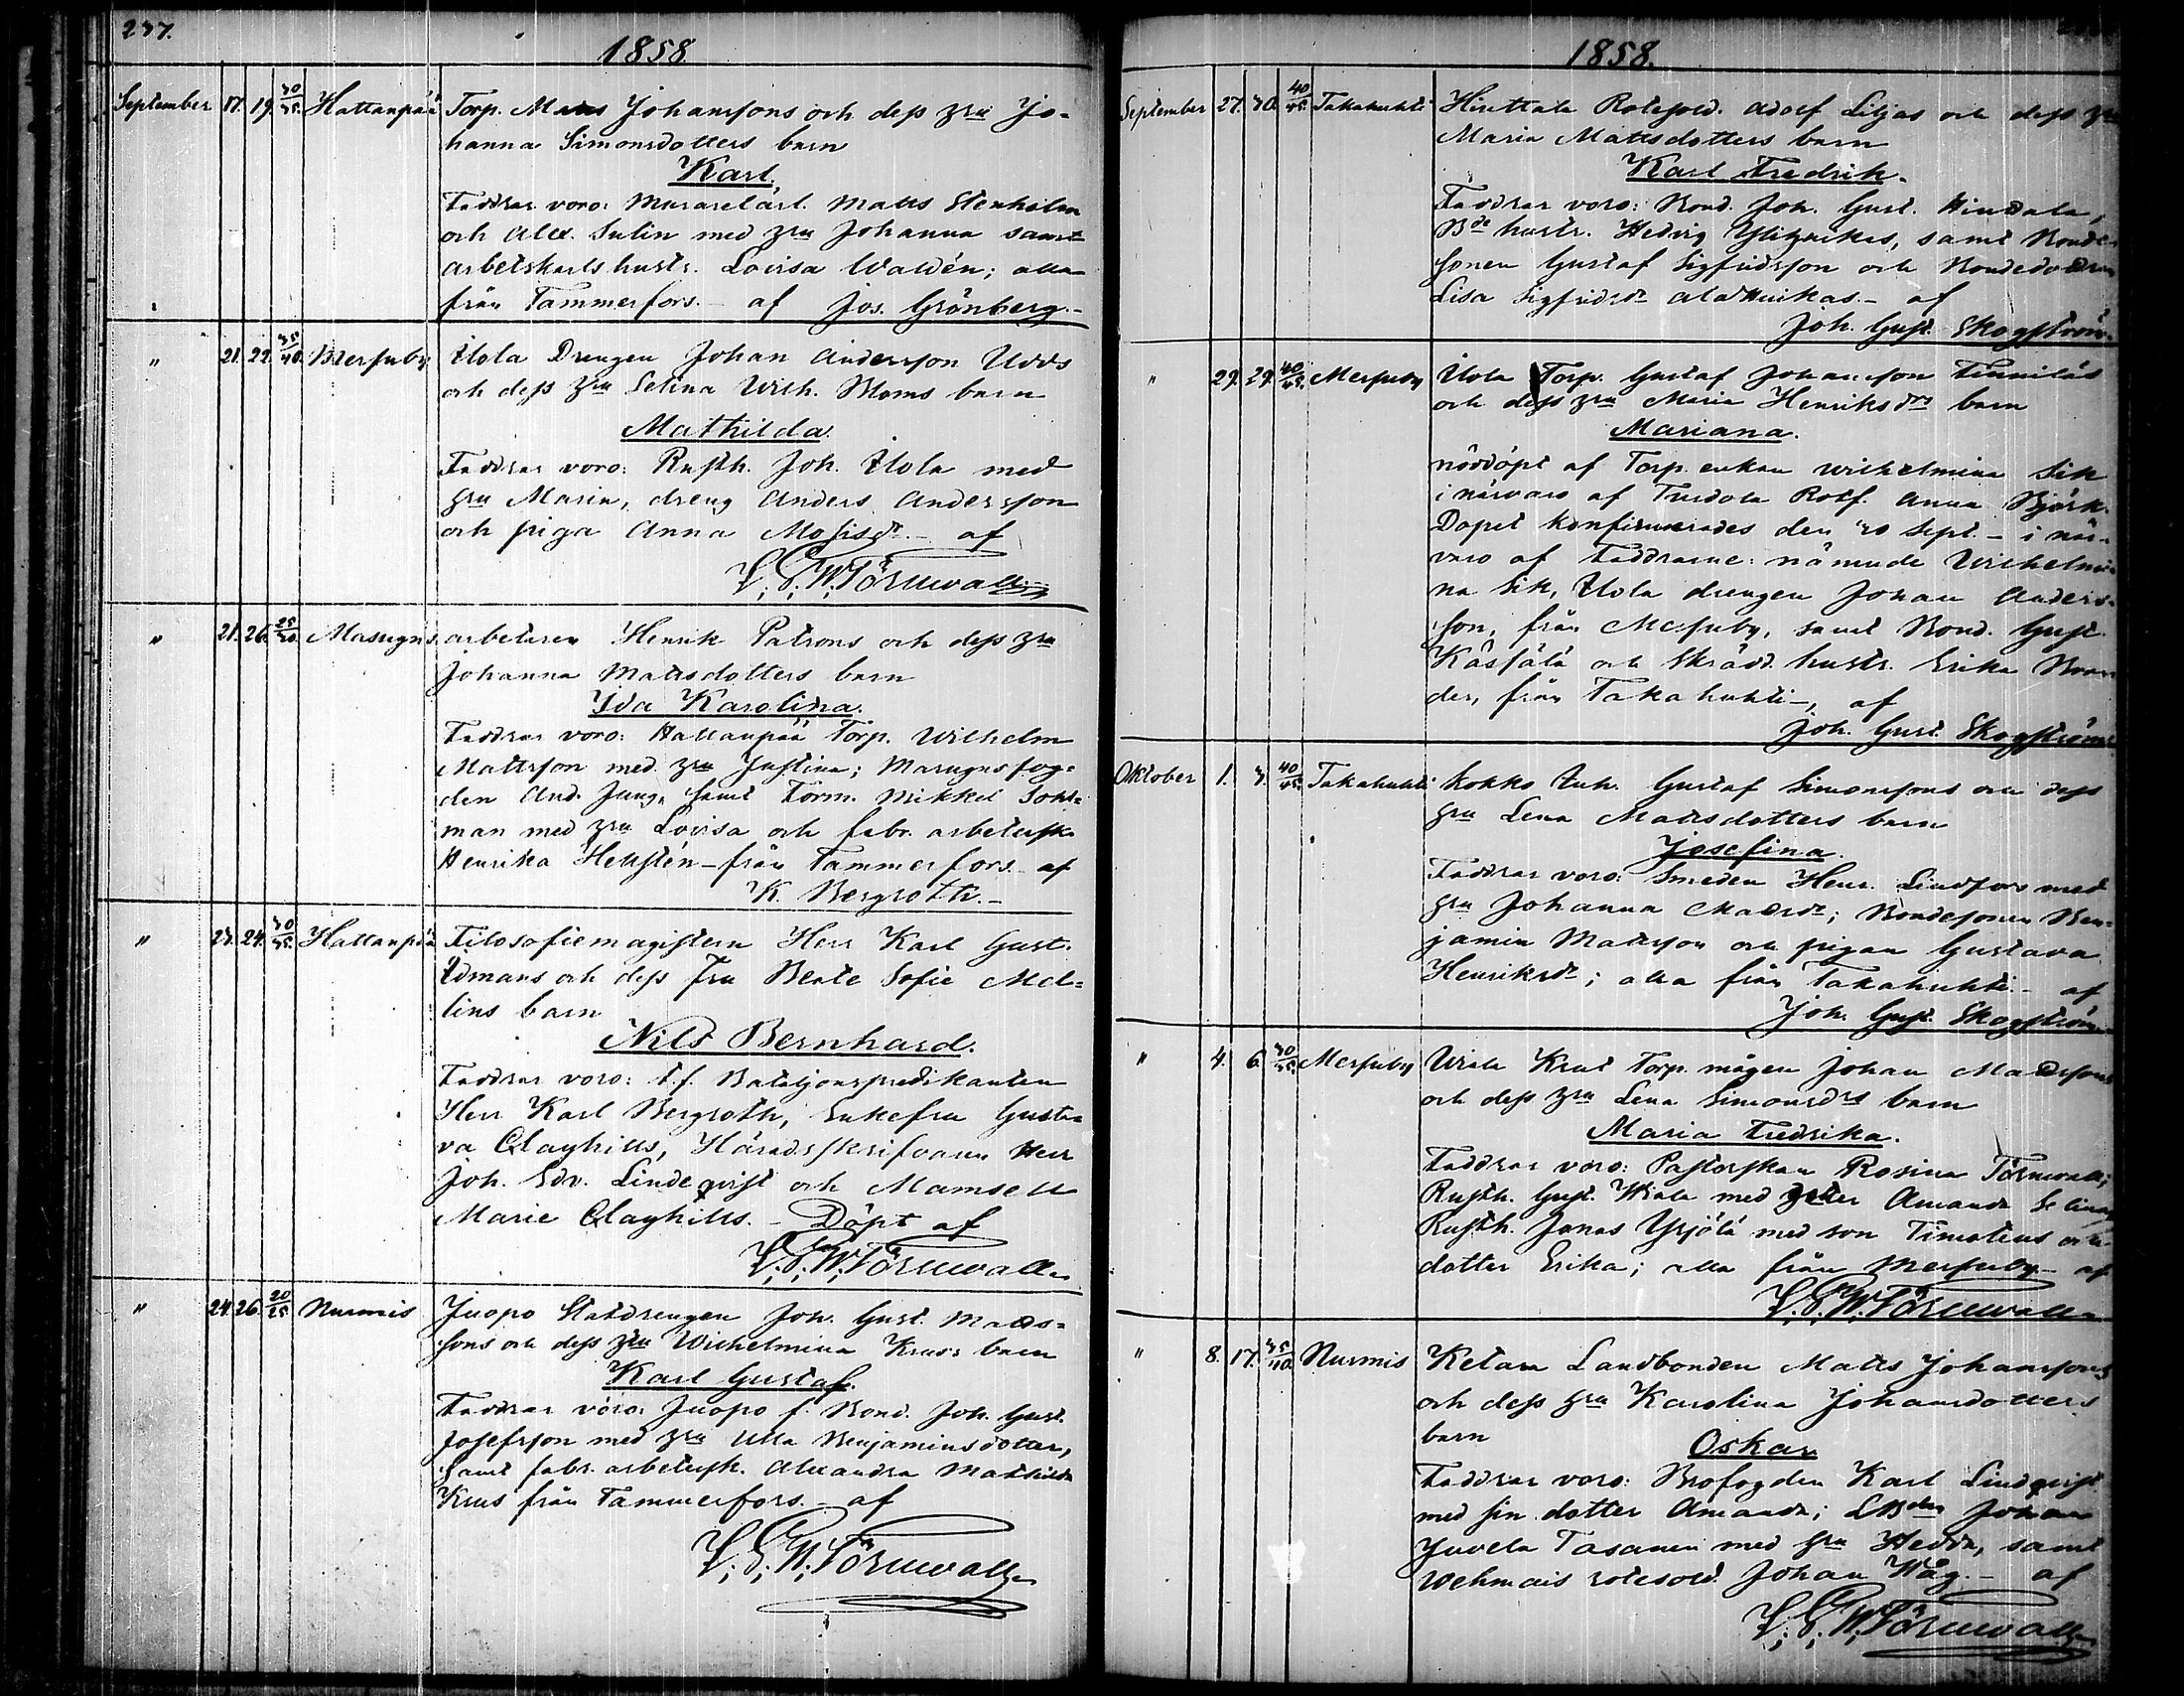 237.
1858.
September 17. 19. 30/35. Hattanpää Torp. Matts Johanssons och dess hru Jo-
hanna Simonsdotters barn
Karl.
Faddrar voro: Murarelärl. Matts Stenholm
och Alex. Sulin med hru Johanna samt
arbetskarls hustr. Lovisa Waldén; alla
från Tammerfors. - af Jos. Grönberg. -
" 21. 22. 35/40. Messuby Uola Drengen Johan Andersson Udds
och dess hru Selina Wilh. Bloms barn
Mathilda.
Faddrar voro: Rusth. Joh. Uola med
hru Maria, dreng Anders Andersson
och piga Anna Mosisdr. - af
F. G. W. Törnwall
" 21. 26. 25/30. Masugns arbetaren Henrik Patrons och dess hru
Johanna Mattsdotters barn
Ida Karolina.
Faddrar voro: Hattanpää Torp. Wilhelm
Mattsson med hru Justina; Masugnsfog-
den And. Jung, samt Form. Mikkel Sohl-
man med hru Lovisa och fabr. arbetersk.
Henrika Hellstén - från Tammerfors. af
K. Bergroth. -
" 23. 24. 30/35. Hattanpää Filosofiemagistern Herr Karl Gust.
Edmans och dess Fru Beate Sofie Mel-
lins barn
Nils Bernhard.
Faddrar voro: t.f. Bataljonspredikanten
Herr Karl Bergroth, Enkefru Gusta-
va Clayhills, Häradsskrifvaren Herr
Joh. Edv. Lindeqvist och Mamsell
Marie Clayhills. - Döpt af
F. G. W. Törnwall
" 24. 26. 20/25 Nurmis Juopo Statdrengen Joh. Gust. Matts-
sons och dess hru Wilhelmina Kruss barn
Karl Gustaf.
Faddrar voro: Juopo f. Bond. Joh. Gust.
Josefsson med hru Ulla Benjaminsdotter,
samt fabr. arbetersk. Alexandra Mathilda
Krus från Tammerfors. - af
F. G. W. Törnwall
1858.
September 27. 30. 40/45. Takahuhti Hinttala Rotesold. Adolf Liljas och dess hru
Maria Mattsdotters barn
Karl Fredrik.
Faddrar voro: Bond. Joh. Gust. Hindala,
Bde hustr. Hedvig, samt Bonde-
sonen Gustaf Sigfridsson och Bondedottren
Lisa Sigfridsdr - af
Joh. Gust. Skogström.
" 29. 29. 40/45. Messuby Uola Torp. Gustaf Johansson
och dess hru Maria Henriksdrs barn
Mariana.
nöddöpt af Torp. enkan Wilhelmina Sik
i närvaro af Turdola Rotf. Anna Björk.
Dopet konfirmerades den 30 Sept. - i när-
varo af faddrarne: nämnde Wilhelmi-
na Sik, Uola drengen Johan Anders-
son, från Messuby, samt Bond. Gust.
och Skrädd. hustr. Erika
der, från Takahuhti -, af
Joh. Gust. Skogström
Oktober 1. 3. 40/45. Takahuhti Kokko Inh. Gustaf Simonssons och dess
hru Lena Mattsdotters barn
Josefina.
Faddrar voro: Smeden Henr. Lindfors med
hru Johanna Mattsdr; Bondesonen Ben-
jamin Mattsson och pigan Gustava
Henriksdr; alla från Takahuhti. - af
Joh. Gust. Skogström
" 4. 6. 30/35. Messuby Wiala Krut Torp. mågen Johan Mattssons
och dess hru Lena Simonsdrs barn
Maria Fredrika.
Faddrar voro: Pastorskan Rosina Törnwall;
Rusth. Gust. Wiala med Amanda Selina;
Rusth. Jonas Yrjölä med son Timoteus och
dotter Erika; alla från Messuby - af
F. G. W. Törnwall
" 8. 17. 35/40. Nurmis Ketara Landbonden Matts Johanssons
och dess hru Karolina Johansdotters
barn
Oskar
Faddrar voro: Brofogden Karl Lindqvist
med sin dotter Amanda; LBden Johan
Juvela Tasanen med hru Hedda, samt
Wehmais rotesold. Johan Wåg. - af
F. G. W. Törnwall